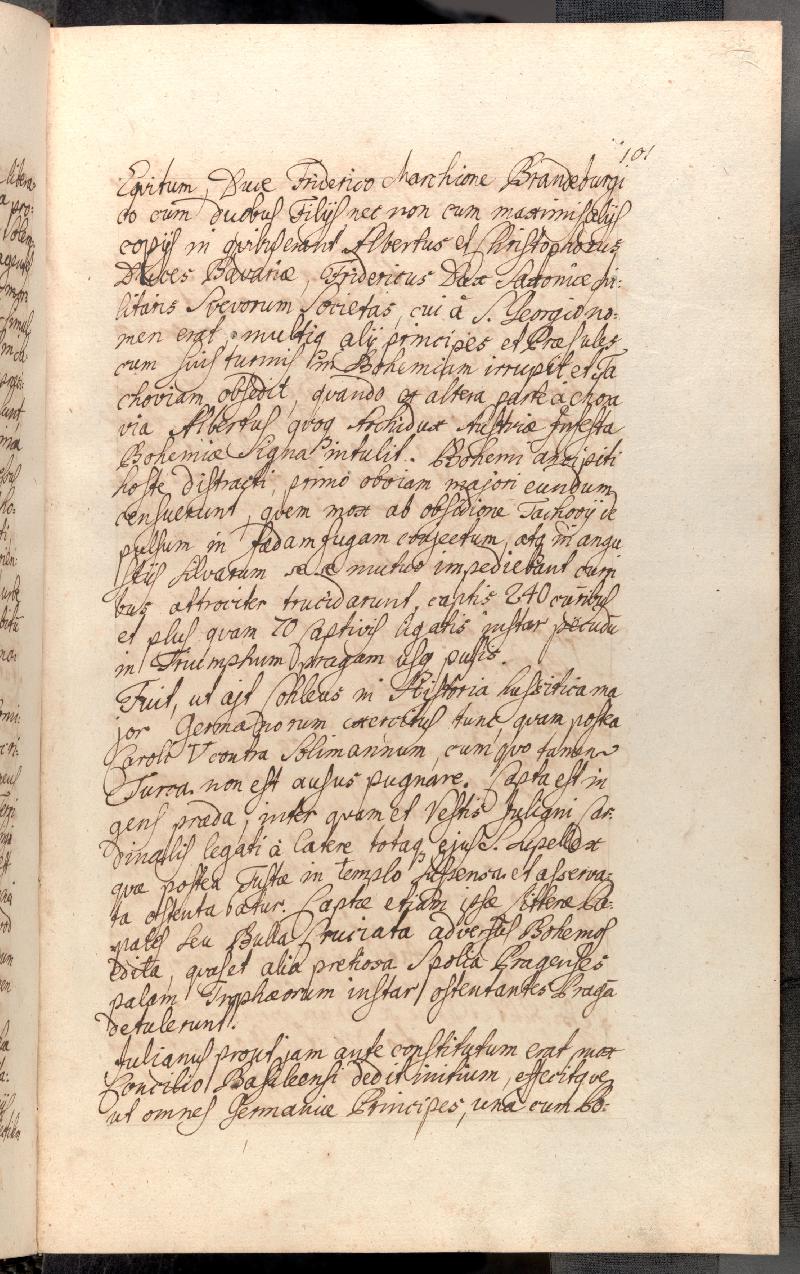 101
Equitum, Duce Friderico Marchione Brandeburgi
co cum duobus Filijs nec non cum maximis alijs
copijs in quibus erant Albertus et Christophorus
Duces Bavariæ, Fridericus Dux Saxoniæ mi:
litaris Svevorum Societas, cui à S. Georgio no:
men erat, multiq alij principes et Præsules
cum suis turmis in Bohemiam irrupit et Ta
choviam obsedit, quando ex altera parte à Mora
via Albertus quoq Archidux Austriæ Infesta
Bohemiæ Signa intulit. Bohemi ancipiti
hoste distracti, primo obviam majori eundum
censuerunt, quem mox ab obsidione Tachovij de
pulsum in fædam fugam conjectum, atq in angu
stijs silvarum se mutuo impediebant curri
bus attrociter trucidarunt, captis 240 curribus
et plus quam 70 Captivis ligatis instar pecudu
in Triumphum Pragam usq
Fuit, ut ajt Cohleus in Historia hussitica ma
jor Germanorum exercitus tunc, quam postea
Caroli V contra Solimannum, cum quo tamen
Turca non est ausus pugnare. Capta est in
gens præda, inter quam et Vestis Juliani Car
dinalis legati à latere totaq ejus Supellex
quæ postea Tustæ in templo suspensa et asserva:
ta ostentabatur. Captæ etjam ipsæ litteræ Pa:
pales seu Bulla Cruciata adversus Bohemos
edita, quas et alia pretiosa Spolia Pragenses
palam Trophæorum instar ostentantes Pragã
detulerunt.
Julianus prout jam ante constitutum erat mox
Concilio Basileensi dedit initium, effecitque
ut omnes Germaniæ Principes, una cum Bo: